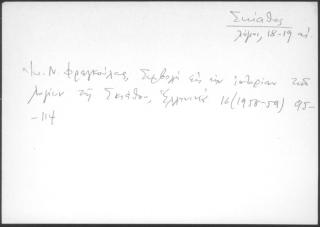 Σκιάθος
λόγιοι, 18-19 αἰ.
Ἰω. Ν. Φραγκούλας, Συμβολὴ εἰς τὴν ἱστορίαν τῶν
λογίων τῆς Σκιάθου, Ἑλληνικά 16 (1958-59) 95-
-114